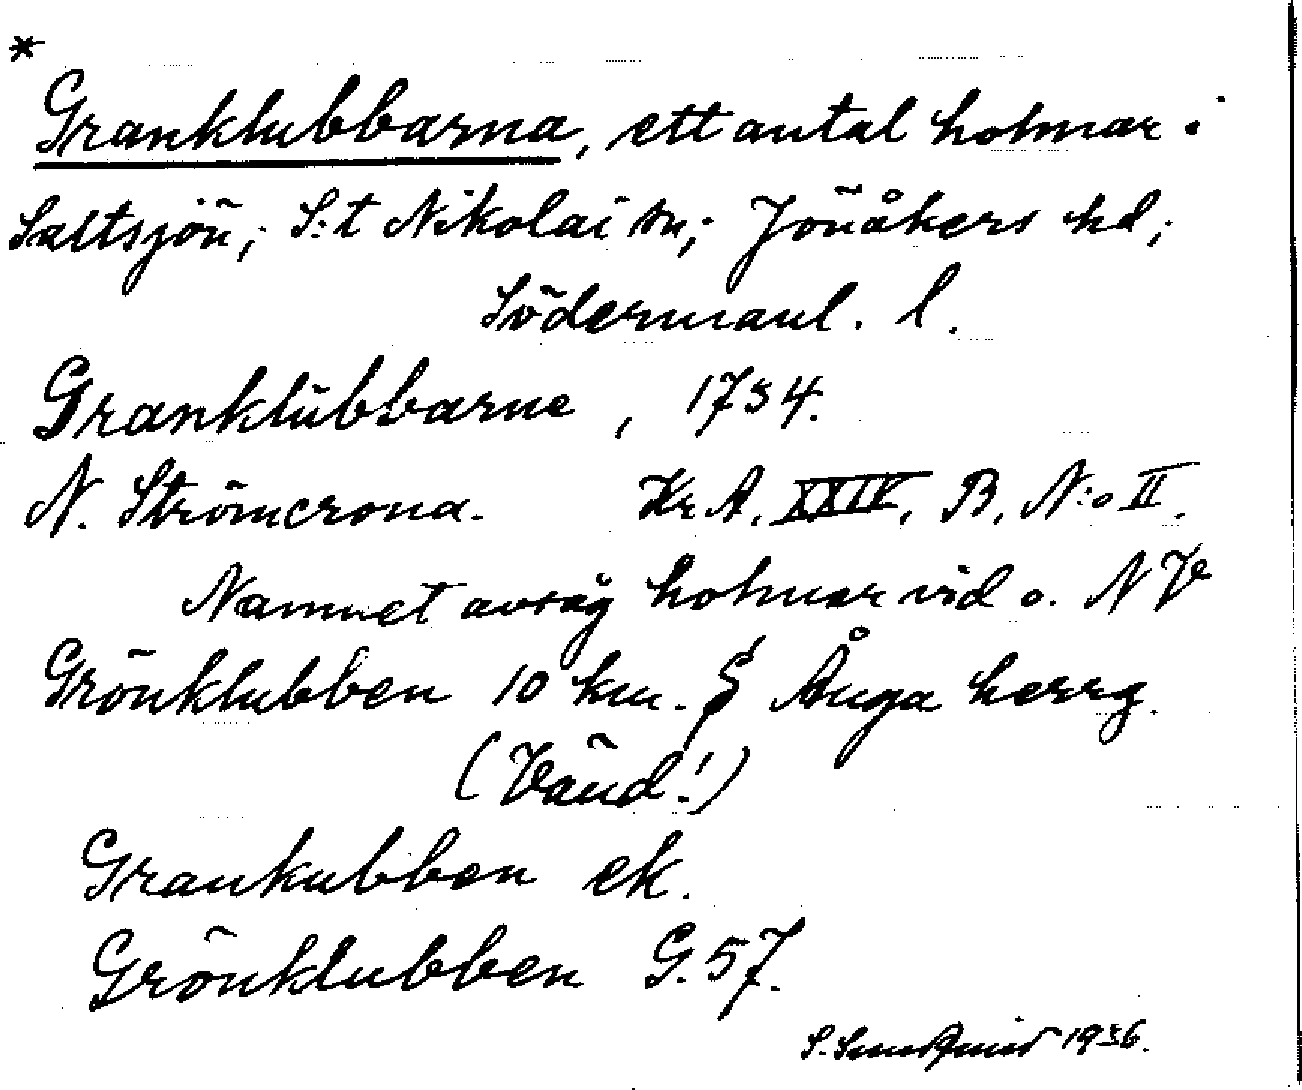 *
Granklubbarna, ett antal holmar i
Saltsjön; S:t Nikolai sn; Jönåkers hd;
Södermanl. l.
Granklubbarne, 1734.
N. Strömcrona. Kr. A. XXIV, B, N:o II.
Namnet avsåg holmar vid o. NV
Grönklubben 10 km. S Ånga herrg.
(Vänd!)
Grankubben ek.
Grönklubben G. 57.
1936.